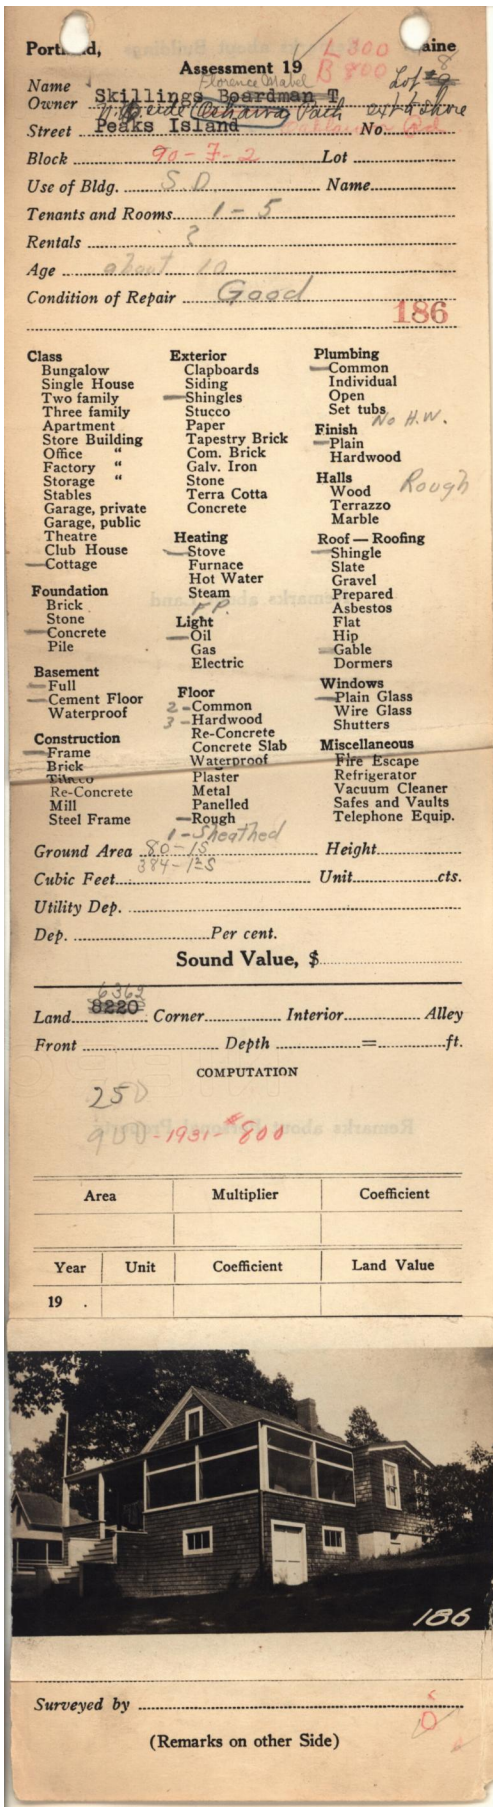 Portland, Maine
L 300
Assessment 19
B 800
Lot 8
Florence Mabel
Name
Owner Skillings Boardman T
Path ext to shore
Street Peaks Island No.
Block 90-7-2 Lot
Use of Bldg. S.D. Name
Tenants and Rooms 1-5
Rentals ?
Age about 10
Condition of Repair Good
186
Class
Bungalow
Single House
Two family
Three family
Apartment
Store Building
Office "
Factory "
Storage "
Stables
Garage, private
Garage, public
Theatre
Club House
Cottage
Foundation
Brick
Stone
Concrete
Pile
Basement
Full
Cement Floor
Waterproof
Construction
Frame
Brick
Tileco
Re-Concrete
Mill
Steel Frame
Exterior
Clapboards
Siding
Shingles
Stucco
Paper
Tapestry Brick
Com. Brick
Galv. Iron
Stone
Terra Cotta
Concrete
Heating
Stove
Furnace
Hot Water
Steam
F.P.
Light
Oil
Gas
Electric
Floor
2 - Common
3 - Hardwood
Re-Concrete
Concrete Slab
Waterproof
Plaster
Metal
Panelled
Rough
1 - Sheathed
Plumbing
Common
Individual
Open
Set tubs
No H.W.
Finish
Plain
Hardwood
Halls
Wood Rough
Terrazzo
Marble
Roof — Roofing
Shingle
Slate
Gravel
Prepared
Asbestos
Flat
Hip
Gable
Dormers
Windows
Plain Glass
Wire Glass
Shutters
Miscellaneous
Fire Escape
Refrigerator
Vacuum Cleaner
Safes and Vaults
Telephone Equip.
Ground Area 80-1S Height
384-1½S
Cubic Feet Unit cts.
Utility Dep.
Dep. Per cent.
Sound Value, $
6362
Land 8220 Corner Interior Alley
Front Depth = ft.
COMPUTATION
250
900 - 1931 - $800
Area Multiplier Coefficient
Year Unit Coefficient Land Value
19 .
186
Surveyed by
(Remarks on other Side)